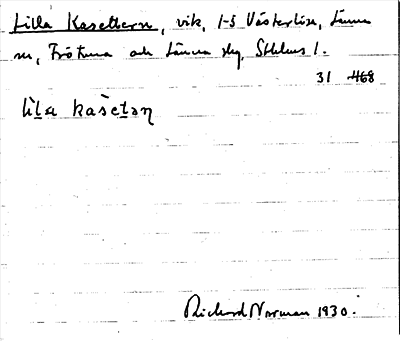 Lilla Kasettern, vik, 1-5 Västerlöse, Länna
sn, Frötuna och Länna skg, Sthlms l.
31 468
lìla kàsetəɳ
Richard Norman 1930.